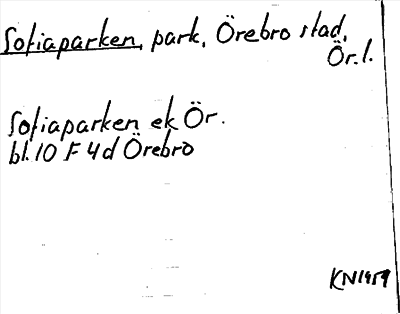 Sofiaparken, park, Örebro stad,
Ör.l.
Sofiaparken ek Ör.
bl. 10 F 4d Örebro
KN1959